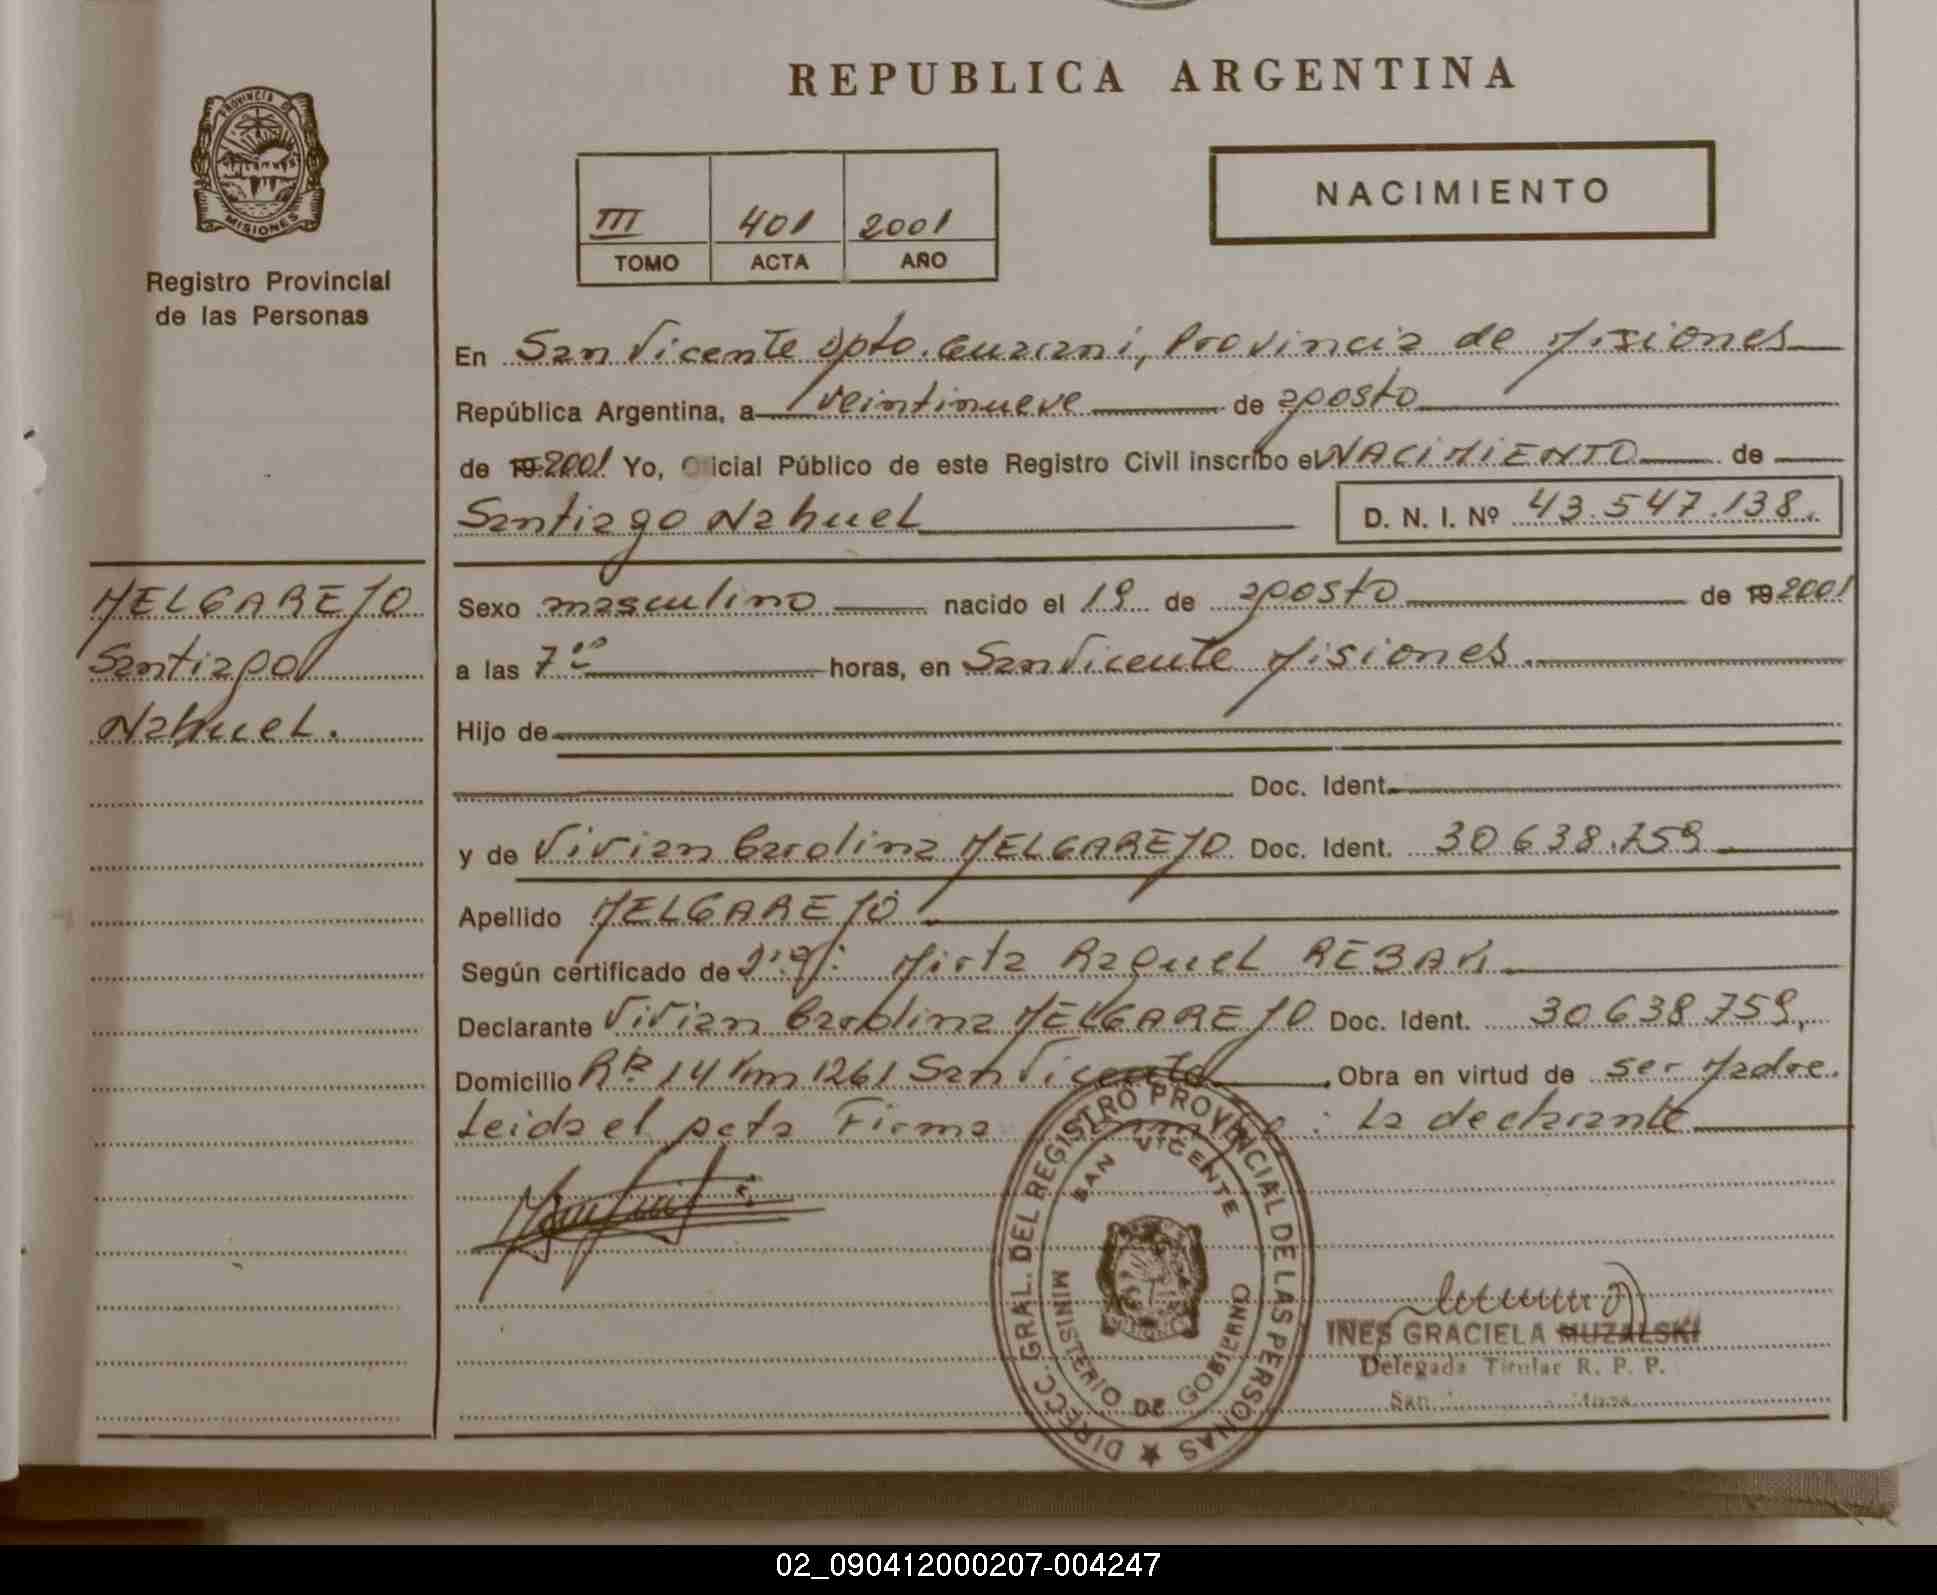 REPUBLICA ARGENTINA
PROVINCIA D
MISIONES
Registro Provincial
de las Personas
III 401 2001
TOMO ACTA AÑO
NACIMIENTO
En San Vicente Dpto. Guaraní, Provincia de Misiones
República Argentina, a veintinueve de agosto
de 19 2001 Yo, Oficial Público de este Registro Civil inscribo el NACIMIENTO de
Santiago Nahuel D. N. I. Nº 43.547.138.
MELGAREJO
Santiago
Nahuel.
Sexo masculino nacido el 19 de agosto de 19 2001
a las 7 horas, en San Vicente Misiones.
Hijo de
Doc. Ident.
y de Vivian Carolina MELGAREJO Doc. Ident. 30638.759
Apellido MELGAREJO
Según certificado de Mirta Raquel REBAK
Declarante Vivian Carolina MELGAREJO Doc. Ident. 30638759,
Domicilio RN 14 Km 1261 San Vicente Obra en virtud de ser Madre.
Leida el acta Firma : La declarante
DIRECC. GRAL. DEL REGISTRO PROVINCIAL DE LAS PERSONAS
SAN VICENTE
MINISTERIO DE GOBIERNO
INES GRACIELA MUZALSKI
Delegada Titular R. P. P.
San
02_090412000207-004247